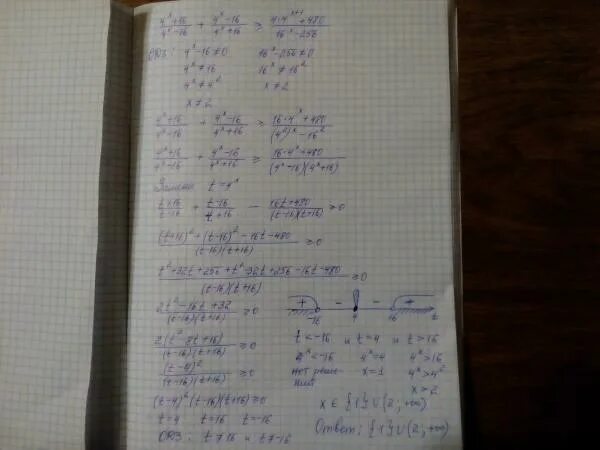 (4^x+16)/(4^x-16) + (4^x-16)/(4^x+16) ≥ (4·4^(x+1)+480)/(16^x-256)
ОДЗ: 4^x-16≠0   16^x-256≠0
4^x≠16   16^x≠16^2
4^x≠4^2   x≠2
x≠2
(4^x+16)/(4^x-16) + (4^x-16)/(4^x+16) ≥ (16·4^x+480)/((4^2)^x-16^2)
(4^x+16)/(4^x-16) + (4^x-16)/(4^x+16) ≥ (16·4^x+480)/((4^x-16)(4^x+16))
Замена t=4^x
(t+16)/(t-16) + (t-16)/(t+16) - (16t+480)/((t-16)(t+16)) ≥0
((t+16)^2+(t-16)^2-16t-480)/((t-16)(t+16)) ≥0
(t^2+32t+256+t^2-32t+256-16t-480)/((t-16)(t+16)) ≥0
(2t^2-16t+32)/((t-16)(t+16)) ≥0
2(t^2-8t+16)/((t-16)(t+16)) ≥0
(t-4)^2/((t-16)(t+16)) ≥0
(t-4)^2(t-16)(t+16)≥0
t=4   t=16   t=-16
ОДЗ: t≠16 и t≠-16
+ - - +
-16 4 16 t
t<-16 и t=4 и t>16
4^x<-16   4^x=4   4^x>16
нет реше-   x=1   4^x>4^2
ний   x>2
x∈{1}∪(2;+∞)
Ответ: {1}∪(2;+∞)